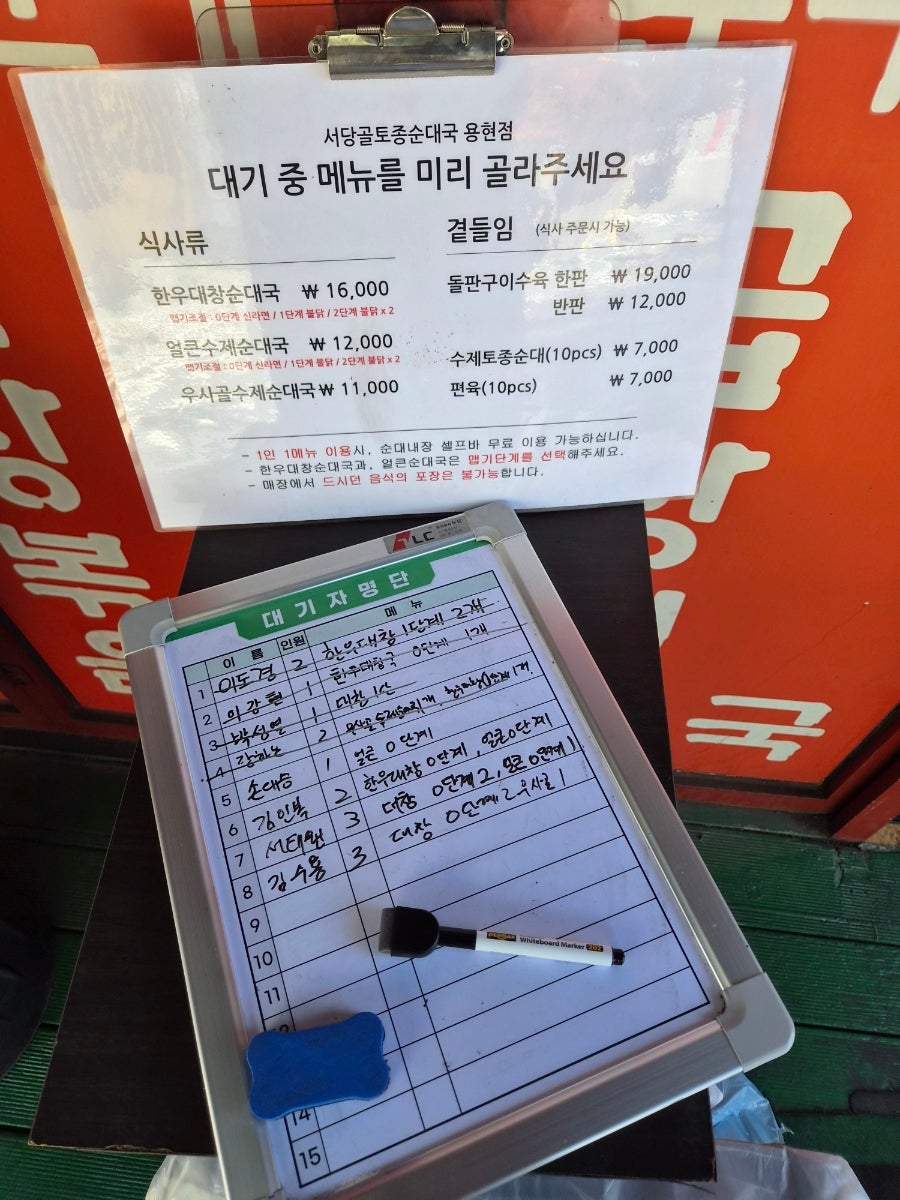 서당골토종순대국 용현점
대기 중 메뉴를 미리 골라주세요
식사류
한우대창순대국 ₩ 16,000
맵기조절 : 0단계 신라면 / 1단계 불닭 / 2단계 불닭 x 2
얼큰수제순대국 ₩ 12,000
맵기조절 : 0단계 신라면 / 1단계 불닭 / 2단계 불닭 x 2
우사골수제순대국 ₩ 11,000
곁들임 (식사 주문시 가능)
돌판구이수육 한판 ₩ 19,000
반판 ₩ 12,000
수제토종순대(10pcs) ₩ 7,000
편육(10pcs) ₩ 7,000
- 1인 1메뉴 이용시, 순대내장 셀프바 무료 이용 가능하십니다.
- 한우대창순대국과, 얼큰순대국은 맵기단계를 선택해주세요.
- 매장에서 드시던 음식의 포장은 불가능합니다.
대기자명단
이름 인원 메뉴
1 이도경 2 한우대창 1단계 2개
2 1 한우대창국 0단계 1개
3 박성열 1 대창 1
4 2
5 손대승 1 얼큰 0단계
6 김인복 2 한우대창 0단계, 얼큰 0단계
7 서태원 3 대창 0단계 2, 얼큰 0단계 1
8 김수용 3 대창 0단계 2 우사골 1
9
10
11
14
15
Whiteboard Marker 202
국